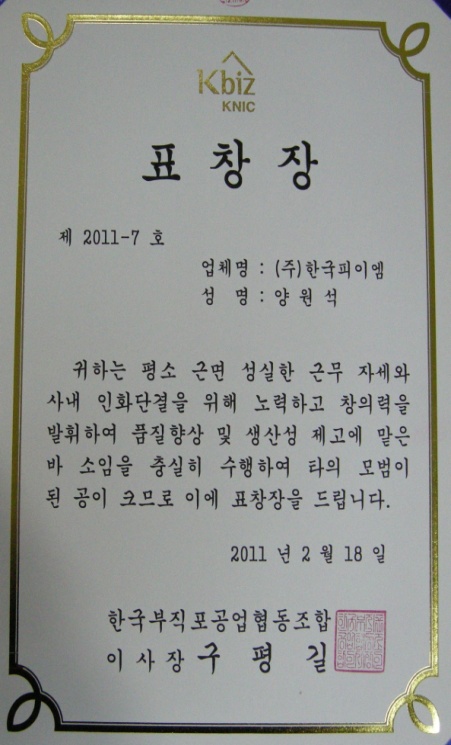 Kbiz
KNIC
표 창 장
제 2011-7 호
업체명 : (주)한국피이엠
성 명 : 양 원 석
귀하는 평소 근면 성실한 근무 자세와
사내 인화단결을 위해 노력하고 창의력을
발휘하여 품질향상 및 생산성 제고에 맡은
바 소임을 충실히 수행하여 타의 모범이
된 공이 크므로 이에 표창장을 드립니다.
2011 년 2 월 18 일
한국부직포공업협동조합
이 사 장 구 평 길